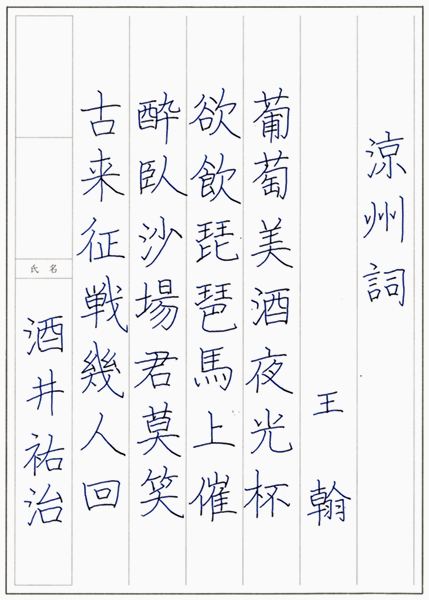 涼州詞
王翰
葡萄美酒夜光杯
欲飲琵琶馬上催
酔臥沙場君莫笑
古来征戦幾人回
氏名
酒井祐治